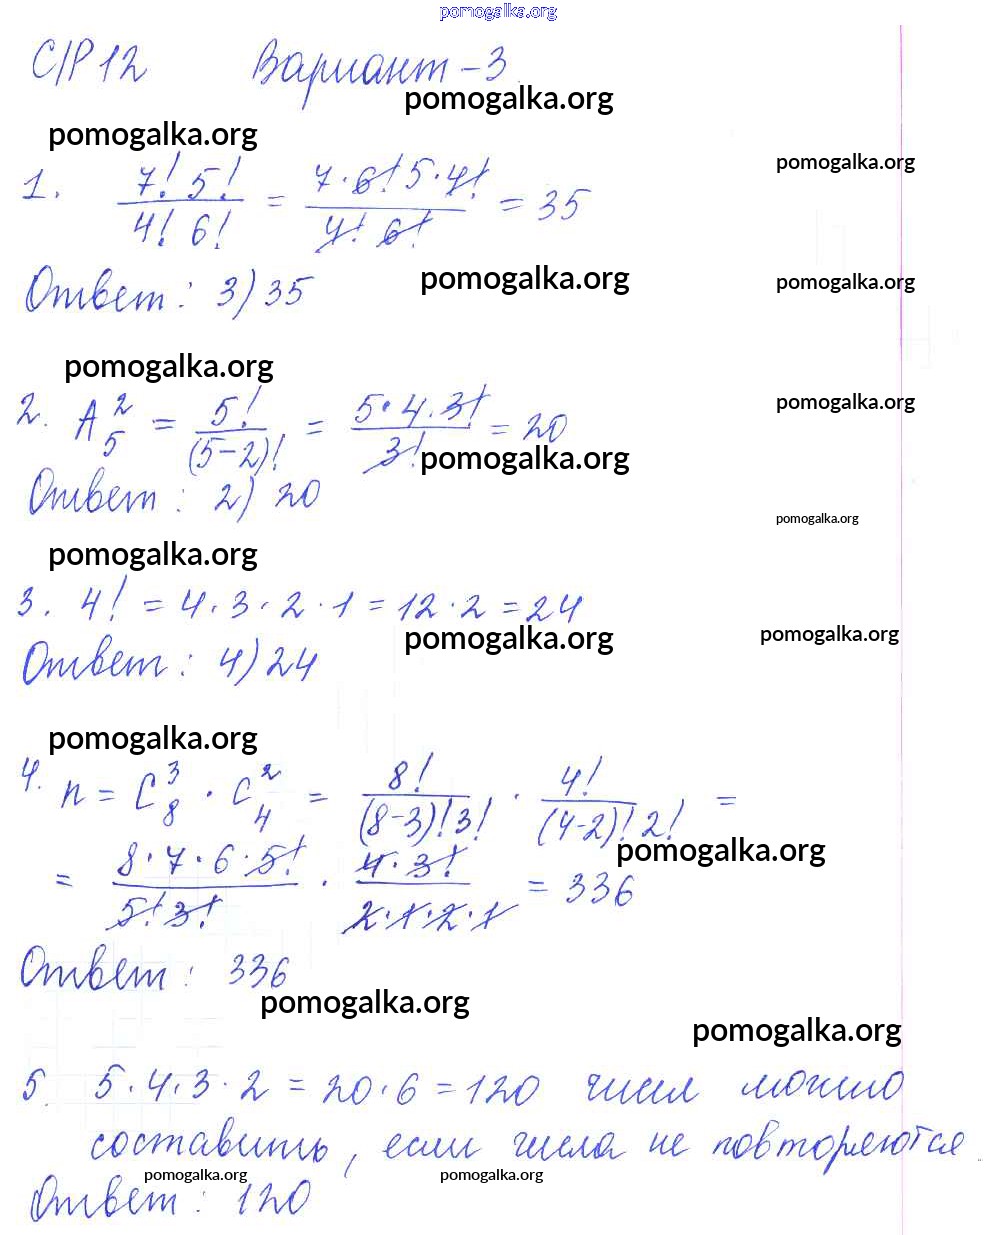 pomogalka.org
С/Р 12 Вариант - 3
pomogalka.org
pomogalka.org
pomogalka.org
1. 7! 5! / 4! 6! = 7 · 6! 5 · 4! / 4! 6! = 35
pomogalka.org
pomogalka.org
Ответ: 3) 35
pomogalka.org
pomogalka.org
2. A₅² = 5! / (5-2)! = 5 · 4 · 3! / 3! = 20
pomogalka.org
Ответ: 2) 20
pomogalka.org
pomogalka.org
3. 4! = 4 · 3 · 2 · 1 = 12 · 2 = 24
pomogalka.org
pomogalka.org
Ответ: 4) 24
pomogalka.org
4. n = C₈³ · C₄² = 8! / (8-3)! 3! · 4! / (4-2)! 2! =
pomogalka.org
= 8 · 7 · 6 · 5! / 5! 3! · 4 · 3! / 2 · 1 · 2 · 1 = 336
Ответ: 336
pomogalka.org
pomogalka.org
5. 5 · 4 · 3 · 2 = 20 · 6 = 120 чисел можно
составить, если числа не повторяются
pomogalka.org pomogalka.org
Ответ: 120